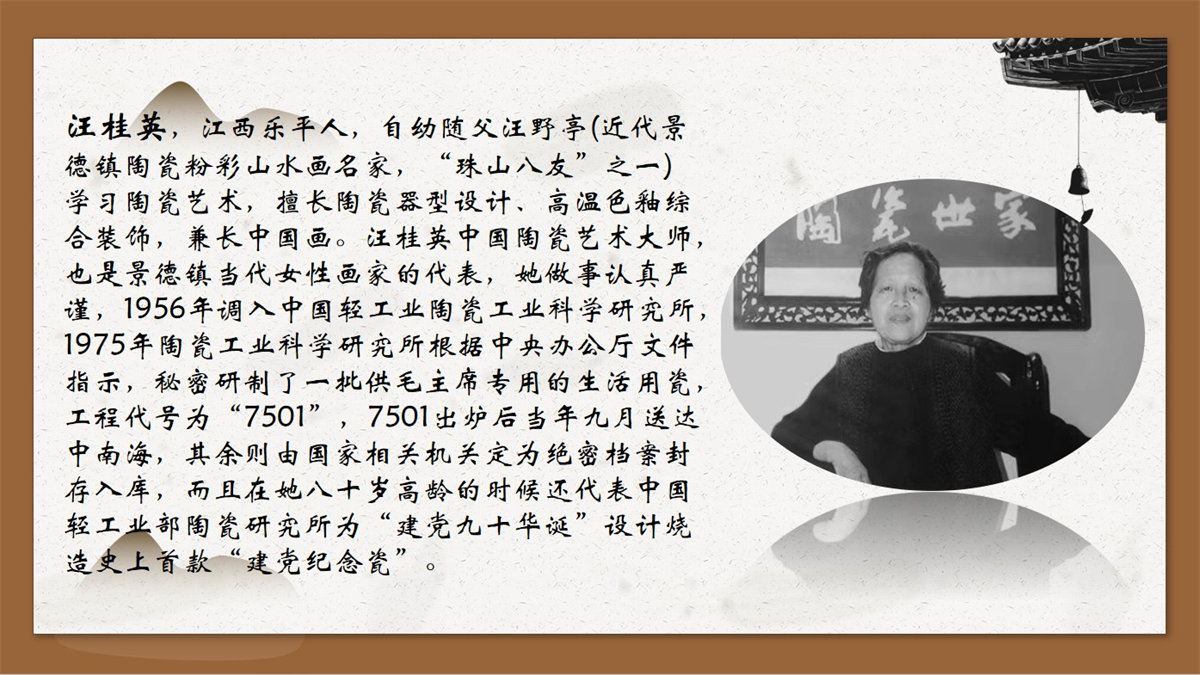 汪桂英，江西乐平人，自幼随父汪野亭(近代景
德镇陶瓷粉彩山水画名家，“珠山八友”之一)
学习陶瓷艺术，擅长陶瓷器型设计、高温色釉综
合装饰，兼长中国画。汪桂英中国陶瓷艺术大师，
也是景德镇当代女性画家的代表，她做事认真严
谨，1956年调入中国轻工业陶瓷工业科学研究所，
1975年陶瓷工业科学研究所根据中央办公厅文件
指示，秘密研制了一批供毛主席专用的生活用瓷，
工程代号为“7501”，7501出炉后当年九月送达
中南海，其余则由国家相关机关定为绝密档案封
存入库，而且在她八十岁高龄的时候还代表中国
轻工业部陶瓷研究所为“建党九十华诞”设计烧
造史上首款“建党纪念瓷”。
陶瓷世家